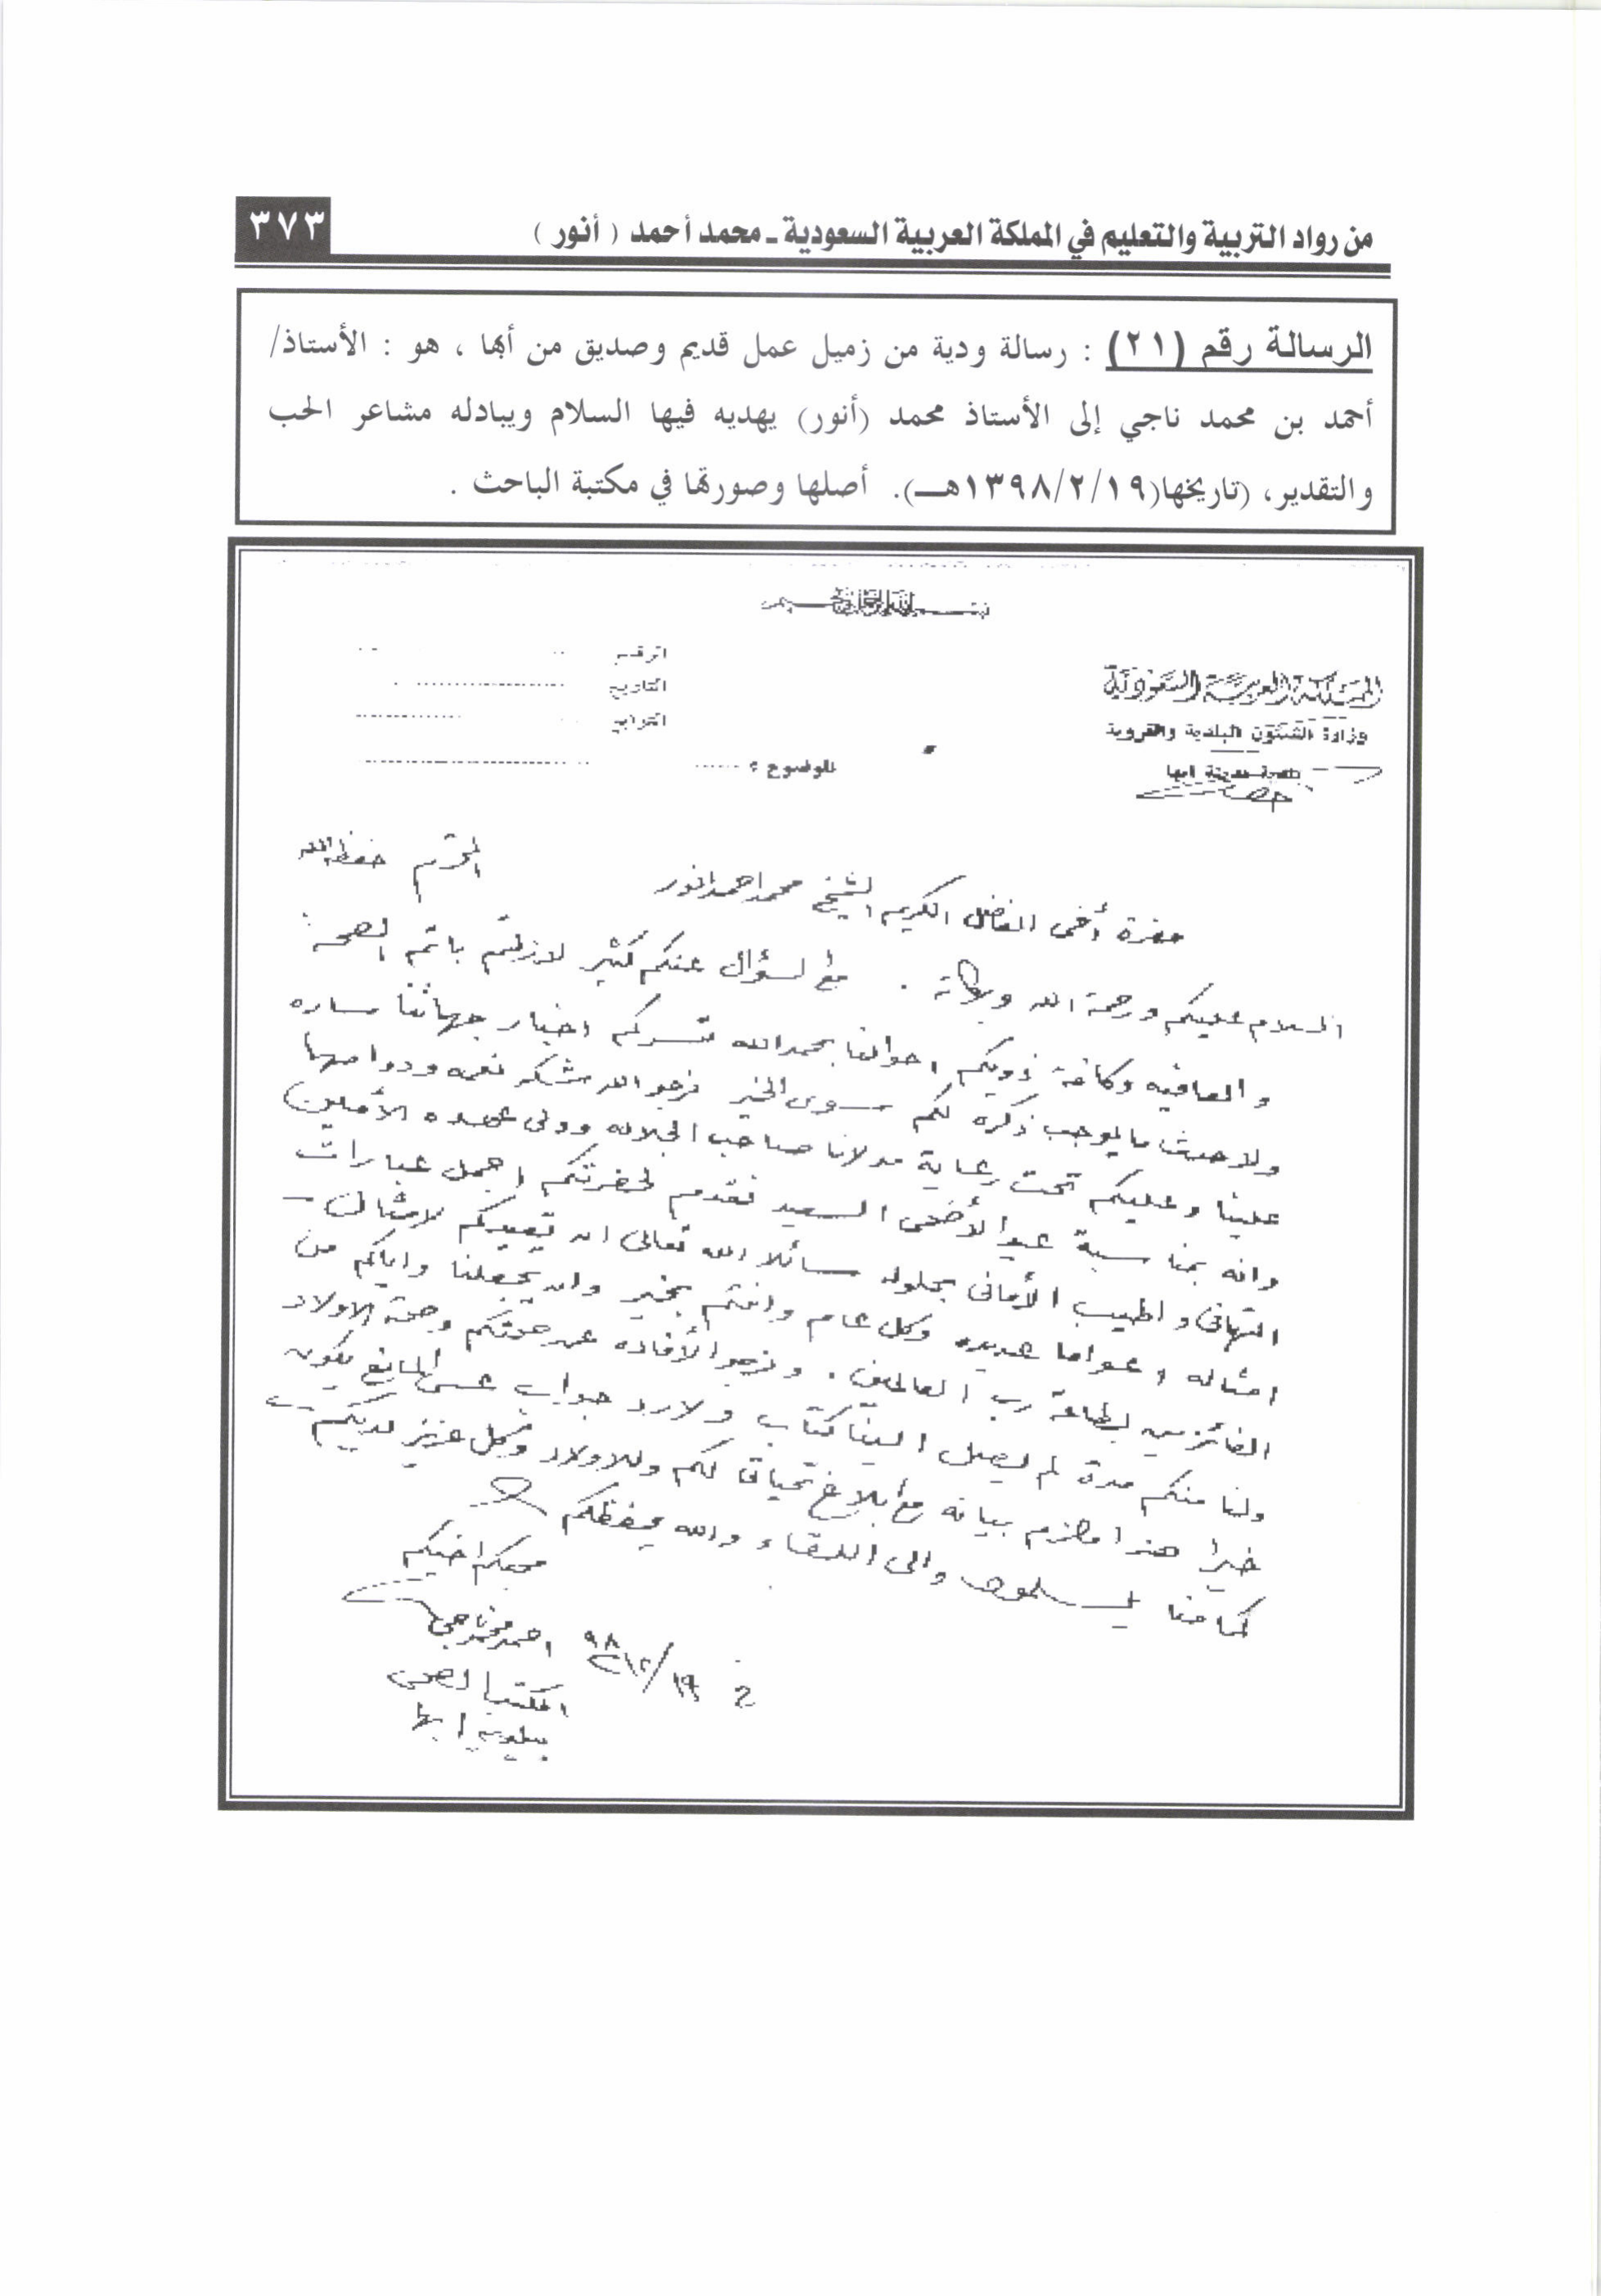 من رواد التربية والتعليم في المملكة العربية السعودية ـ محمد أحمد ( أنور )
٣٧٣
الرسالة رقم (٢١) : رسالة ودية من زميل عمل قديم وصديق من أبها ، هو : الأستاذ/
أحمد بن محمد ناجي إلى الأستاذ محمد (أنور) يهديه فيها السلام ويبادله مشاعر الحب
والتقدير، (تاريخها(١٣٩٨/٢/١٩هـ). أصلها وصورتها في مكتبة الباحث .
المملكة العربية السعودية
وزارة الشئون البلدية والقروية
مدينة ابها
الرقم
التاريخ
التوابع
الموضوع :
حضرة أخي الفاضل الكريم الشيخ محمد احمد انور المحترم حفظه الله
السلام عليكم ورحمة الله وبركاته . مع السؤال عنكم كثير لازلتم باتم الصحة
والعافيه وكافة ذويكم احوالنا بحمدالله تسركم اخبار جهاتنا ساره
ولاحدث مايوجب ذكره لكم سوى الخير نرجو الله شكر نعمه ودوامها
علينا وعليكم تحت رعاية مولانا صاحب الجلاله وولى عهده الأمين
وانه بمناسبة عيد الأضحى السعيد نقدم لحضرتكم اجمل عبارات
التهانى واطيب الأمانى بحلوله سائلا الله تعالى ان يعيدكم لامثال
امثاله اعواما عديده وكل عام وانتم بخير وان يجعلنا واياكم من
الفائزين بطاعة رب العالمين . ونرجو الأفاده عن صحتكم وصحة الاولاد
ولنا منكم مدة لم يصل الينا كتاب ولارد جواب عسى المانع يكون
خيرا هذا مالزم بيانه مع أبلاغ تحياتى لكم وللاولاد وكل عزيز لديكم
كما منا يسلمون والى اللقاء والله يحفظكم
محبكم اخيكم
احمد محمد ناجى
المكتب الصحى
ببلدية ابها
في ١٩/٢/٩٨